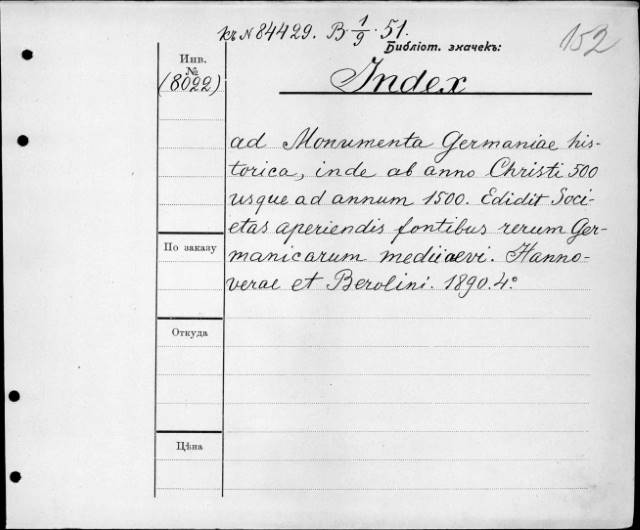 къ N 84429. B 1/9. 51.
152
Библіот. значекъ:
Инв.
№
(8022)
Index
ad Monumenta Germaniae his-
torica, inde ab anno Christi 500
usque ad annum 1500. Edidit Soci-
etas aperiendis fontibus rerum Ger-
manicarum mediiaevi. Hanno-
verae et Berolini. 1890. 4°
По заказу
Откуда
Цѣна